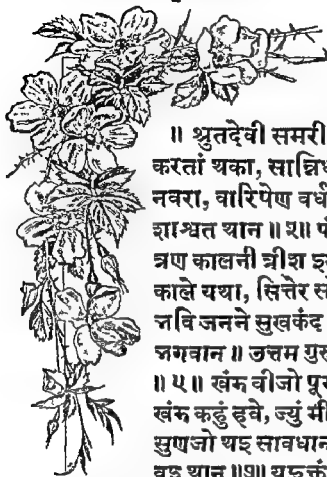 ॥ श्रुतदेवी समरी
करतां थका, सान्निध
नवरा, वारिषेण वर्ध
शाश्वत थान ॥ २॥
त्रण कालनी त्रीश
काले यथा, सित्तेर स
भवि जनने सुखकंद
भगवान ॥ उत्तम गुरु
॥ ५॥ खंड बीजो पूर
खंड कहुं हवे, ज्युं मी
सुणजो थइ सावधान
थान ॥७॥